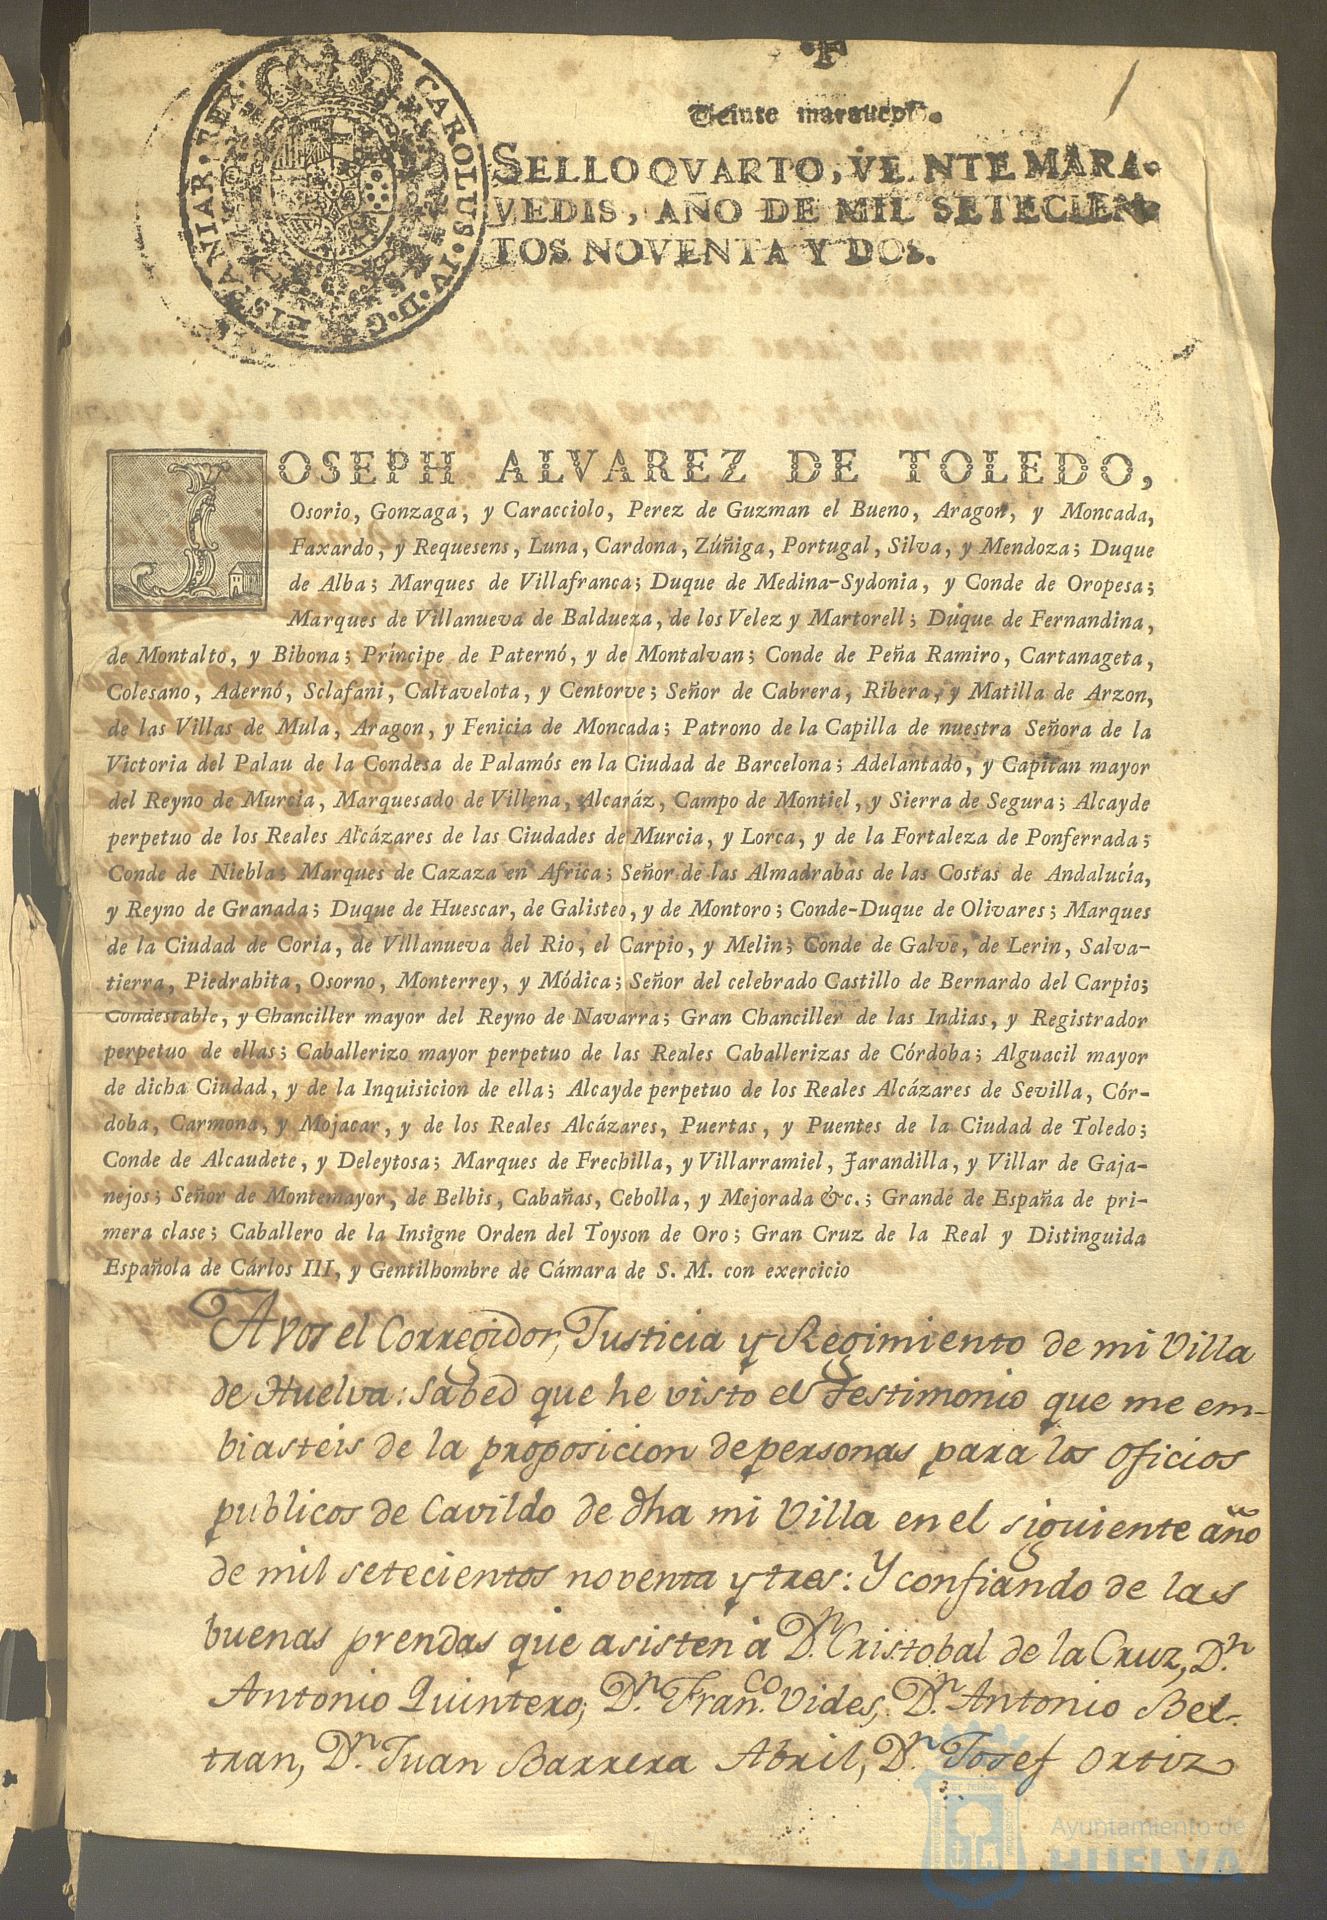 1
Veinte marauedis.
SELLO QVARTO, VEINTE MARA-
VEDIS, AÑO DE MIL SETECIEN-
TOS NOVENTA Y DOS.
CAROLUS · IV · D · G · HISPANIAR · REX ·
JOSEPH ALVAREZ DE TOLEDO,
Osorio, Gonzaga, y Caracciolo, Perez de Guzman el Bueno, Aragon, y Moncada,
Faxardo, y Requesens, Luna, Cardona, Zúñiga, Portugal, Silva, y Mendoza; Duque
de Alba; Marques de Villafranca; Duque de Medina-Sydonia, y Conde de Oropesa;
Marques de Villanueva de Baldueza, de los Velez y Martorell; Duque de Fernandina,
de Montalto, y Bibona; Príncipe de Paternó, y de Montalvan; Conde de Peña Ramiro, Cartanageta,
Colesano, Adernó, Sclafani, Caltavelota, y Centorve; Señor de Cabrera, Ribera, y Matilla de Arzon,
de las Villas de Mula, Aragon, y Fenicia de Moncada; Patrono de la Capilla de nuestra Señora de la
Victoria del Palau de la Condesa de Palamós en la Ciudad de Barcelona; Adelantado, y Capitan mayor
del Reyno de Murcia, Marquesado de Villena, Alcaráz, Campo de Montiel, y Sierra de Segura; Alcayde
perpetuo de los Reales Alcázares de las Ciudades de Murcia, y Lorca, y de la Fortaleza de Ponferrada;
Conde de Niebla; Marques de Cazaza en Africa; Señor de las Almadrabas de las Costas de Andalucía,
y Reyno de Granada; Duque de Huescar, de Galisteo, y de Montoro; Conde-Duque de Olivares; Marques
de la Ciudad de Coria, de Villanueva del Rio, el Carpio, y Melin; Conde de Galve, de Lerin, Salva-
tierra, Piedrahita, Osorno, Monterrey, y Módica; Señor del celebrado Castillo de Bernardo del Carpio;
Condestable, y Chanciller mayor del Reyno de Navarra; Gran Chanciller de las Indias, y Registrador
perpetuo de ellas; Caballerizo mayor perpetuo de las Reales Caballerizas de Córdoba; Alguacil mayor
de dicha Ciudad, y de la Inquisicion de ella; Alcayde perpetuo de los Reales Alcázares de Sevilla, Cór-
doba, Carmona, y Mojacar, y de los Reales Alcázares, Puertas, y Puentes de la Ciudad de Toledo;
Conde de Alcaudete, y Deleytosa; Marques de Frechilla, y Villarramiel, Jarandilla, y Villar de Gaja-
nejos; Señor de Montemayor, de Belbis, Cabañas, Cebolla, y Mejorada &c.; Grande de España de pri-
mera clase; Caballero de la Insigne Orden del Toyson de Oro; Gran Cruz de la Real y Distinguida
Española de Cárlos III, y Gentilhombre de Cámara de S. M. con exercicio
A vos el Corregidor, Justicia y Regimiento de mi Villa
de Huelva: Sabed que he visto el Testimonio que me em-
biasteis de la proposicion de personas para los oficios
publicos de Cavildo de dha mi Villa en el siguiente año
de mil setecientos noventa y tres: Y confiando de las
buenas prendas que asisten à Dn. Cristobal de la Cruz, Dn.
Antonio Quintero, Dn. Franco. Vides, Dn. Antonio Bel-
tran, Dn. Juan Barrera Abril, Dn. Josef Ortiz
Ayuntamiento de
HUELVA